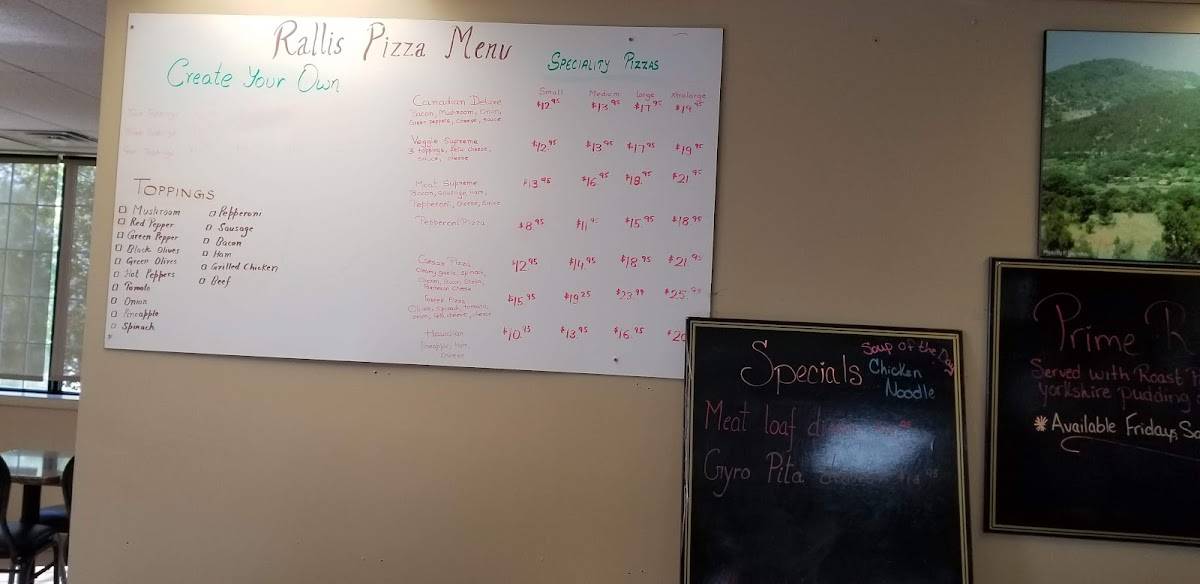 Rallis Pizza Menu
Create Your Own
TOPPINGS
Mushroom
Red Pepper
Green Pepper
Black Olives
Green Olives
Hot Peppers
Tomato
Onion
Pineapple
Spinach
Pepperoni
Sausage
Bacon
Ham
Grilled Chicken
Beef
SPECIALITY PIZZAS
Small Medium Large Xtralarge
Canadian Deluxe $12.95 $13.95 $17.95 $19.95
Bacon, Mushroom, Onion,
Green peppers, cheese, sauce
Veggie Supreme $12.95 $13.95 $17.95 $19.95
3 toppings, Feta cheese,
sauce, cheese
Meat Supreme $13.95 $16.95 $18.95 $21.95
Bacon, Sausage, Ham,
Pepperoni, cheese, sauce
Pepperoni Pizza $8.95 $11.95 $15.95 $18.95
Caesar Pizza $12.95 $14.95 $18.95 $21.95
Creamy garlic, spinach,
Chicken, Bacon,
Parmesan cheese
Greek Pizza $15.95 $19.25 $23.99 $25.99
Olives, spinach, tomato,
onion, feta cheese, cheese
Hawaiian $10.95 $13.95 $16.95 $20
Pineapple, Ham,
cheese
Specials
Soup of the Day
Chicken
Noodle
Meat loaf
Gyro Pita
Prime R
Served with Roast
yorkshire pudding
* Available Fridays, Sa